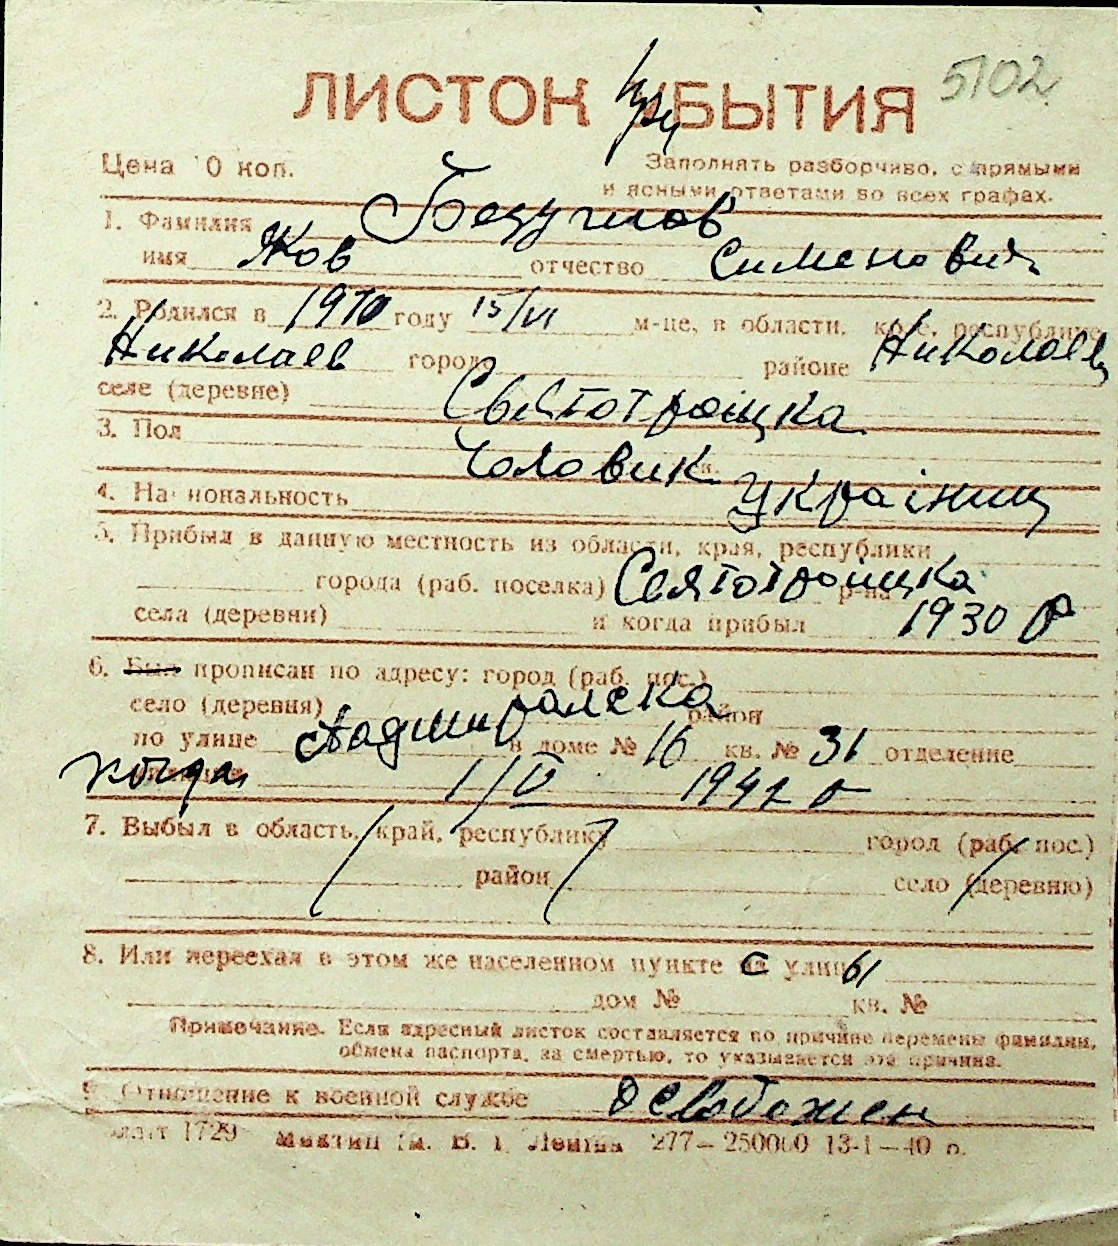 5102
ЛИСТОК при БЫТИЯ
Цена 10 коп. Заполнять разборчиво, с прямыми
и ясными ответами во всех графах.
1. Фамилия Безуглов
имя Яков отчество Сименович
2. Родился в 1910 году 15/VI м-це, в области, крае, республике
Николаев городе районе Николаев
селе (деревне) Святотроицка
3. Пол Чоловик
4. Национальность Українец
5. Прибыл в данную местность из области, края, республики
города (раб. поселка) Святотроицка р-на
села (деревни) и когда прибыл 1930 р
6. Был прописан по адресу: город (раб. пос.)
село (деревня) район
по улице Адмиралска в доме № 16 кв. № 31 отделение
милиции когда 1/IV 1942 г
7. Выбыл в область, край, республику город (раб. пос.)
район село (деревню)
8. Или переехал в этом же населенном пункте с улицы
дом № кв. №
Примечание. Если адресный листок составляется по причине перемены фамилии,
обмена паспорта, за смертью, то указывается эта причина.
9. Отношение к военной службе Освобожен
1729 В. І. Леніна 277—250000 13-1—40 р.